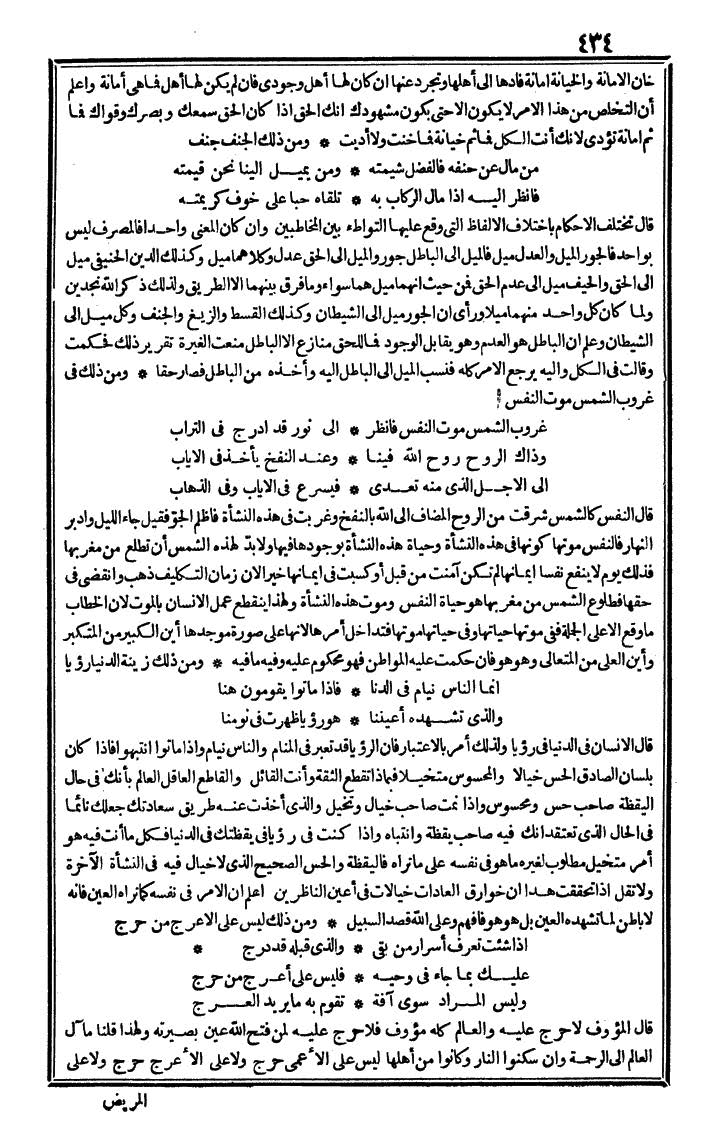 ٤٣٤
خان الامانة والخيانة امانة فادها الى أهلها وتجرد عنها ان كان لها أهل وجودى فان لم يكن لها أهل فما هى أمانة واعلم
أن التخلص من هذا الامر لا يكون الا حتى يكون مشهودك انك الحق اذا كان الحق سمعك وبصرك وقواك فما
ثم امانة تؤدى لانك أنت الكل فما ثم خيانة فما خنت ولا أديت * ومن ذلك الجنف جنف
من مال عن حنفه فالفضل شيمته * ومن يميل الينا نحن قيمته
فانظر اليه اذا مال الركاب به * تلقاه حبا على خوف كريمته
قال تختلف الاحكام باختلاف الالفاظ التى وقع عليها التواطاء بين المخاطبين وان كان المعنى واحدا فالمصرف ليس
بواحد فالجور الميل والعدل ميل فالميل الى الباطل جور والميل الى الحق عدل وكلاهما ميل وكذلك الدين الحنيفى ميل
الى الحق والحيف ميل الى عدم الحق فمن حيث انهما ميل هما سواء وما فرق بينهما الا الطريق ولذلك ذكر الله نجدين
ولما كان كل واحد منهما ميلا ورأى ان الجور ميل الى الشيطان وكذلك القسط والزيغ والجنف وكل ميل الى
الشيطان وعلم ان الباطل هو العدم وهو يقابل الوجود فما للحق منازع الا الباطل منعت الغيرة تقرير ذلك فحكمت
وقالت فى الكل واليه يرجع الامر كله فنسب الميل الى الباطل اليه وأخذه من الباطل فصار حقا * ومن ذلك فى
غروب الشمس موت النفس
غروب الشمس موت النفس فانظر * الى نور قد ادرج فى التراب
وذاك الروح روح الله فينا * وعند النفخ يأخذ فى الاياب
الى الاجل الذى منه تعدى * فيسرع فى الاياب وفى الذهاب
قال النفس كالشمس شرقت من الروح المضاف الى الله بالنفخ وغربت فى هذه النشأة فاظلم الجو فقيل جاء الليل وادبر
النهار فالنفس موتها كونها فى هذه النشأة وحياة هذه النشأة بوجودها فيها ولا بد لهذه الشمس أن تطلع من مغربها
فذلك يوم لا ينفع نفسا ايمانها لم تكن آمنت من قبل أو كسبت فى ايمانها خيرا لان زمان التكليف ذهب وانقضى فى
حقها فطلوع الشمس من مغربها هو حياة النفس وموت هذه النشأة ولهذا ينقطع عمل الانسان بالموت لان الخطاب
ما وقع الا على الجملة ففى موتها حياتها وفى حياتها موتها فتداخل أمرها لانها على صورة موجدها أين الكبير من المتكبر
وأين العلى من المتعالى وهو هو فان حكمت عليه المواطن فهو محكوم عليه وفيه مافيه * ومن ذلك زينة الدنيا رؤيا
انما الناس نيام فى الدنا * فاذا ماتوا يقومون هنا
والذى تشهده أعيننا * هو رؤيا ظهرت فى نومنا
قال الانسان فى الدنيا فى رؤيا ولذلك أمر بالاعتبار فان الرؤيا قد تعبر فى المنام والناس نيام واذا ماتوا انتبهوا فاذا كان
بلسان الصادق الحس خيالا والمحسوس متخيلا فبماذا تقطع الثقة وأنت القائل والقاطع العاقل العالم بأنك فى حال
اليقظة صاحب حس ومحسوس واذا نمت صاحب خيال وتخيل والذى أخذت عنه طريق سعادتك جعلك نائما
فى الحال الذى تعتقد انك فيه صاحب يقظة وانتباه واذا كنت فى رؤيا فى يقظتك فى الدنيا فكل ما أنت فيه هو
أمر متخيل مطلوب لغيره ماهو فى نفسه على ما تراه فاليقظة والحس الصحيح الذى لا خيال فيه فى النشأة الآخرة
ولا تقل اذا تحققت هذا ان خوارق العادات خيالات فى أعين الناظرين اعلم ان الامر فى نفسه كما تراه العين فانه
لا باطن لما تشهده العين بل هو هو فافهم وعلى الله قصد السبيل * ومن ذلك ليس على الاعرج من حرج
اذا شئت تعرف أسرار من بقى * والذى قبله قد درج *
عليك بما جاء فى وحيه * فليس على أعرج من حرج
وليس المراد سوى آفة * تقوم به ما يريد العرج
قال المؤوف لا حرج عليه والعالم كله مؤوف فلا حرج عليه لمن فتح الله عين بصيرته ولهذا قلنا مآل
العالم الى الرحمة وان سكنوا النار وكانوا من أهلها ليس على الأعمى حرج ولا على الأعرج حرج ولا على
المريض